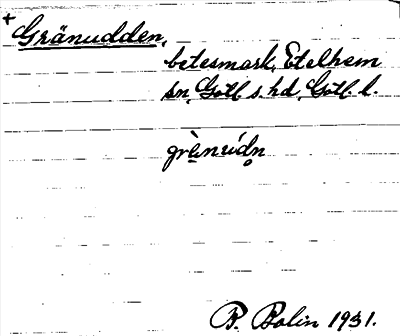 +
Gränudden,
betesmark, Etelhem
sn, Gotl. s. hd, Gotl. l.
grènùdn
B. Bolin 1931.